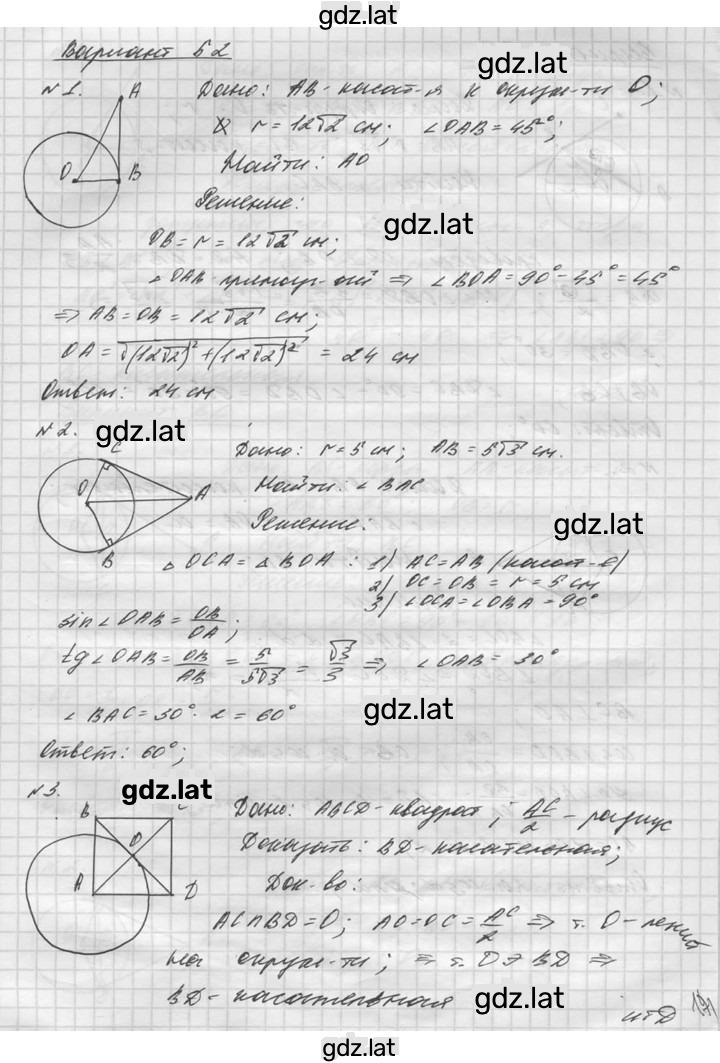 gdz.lat
Вариант Б2
gdz.lat
N 1.
A
O B
Дано: AB - касат-я к окруж-ти O;
r = 12√2 см; ∠OAB = 45°;
Найти: AO
Решение:
gdz.lat
OB = r = 12√2 см;
△OAB - прямоуг-ый ⇒ ∠BOA = 90° - 45° = 45°
⇒ AB = OB = 12√2 см;
OA = √(12√2)² + (12√2)² = 24 см
Ответ: 24 см
gdz.lat
N 2.
C
O A
B
Дано: r = 5 см; AB = 5√3 см.
Найти: ∠BAC
Решение:
gdz.lat
△OCA = △BOA : 1) AC = AB (касат-е)
2) OC = OB = r = 5 см
3) ∠OCA = ∠OBA = 90°
sin∠OAB = OB/OA;
tg∠OAB = OB/AB = 5/5√3 = √3/3 ⇒ ∠OAB = 30°
∠BAC = 30° · 2 = 60°
gdz.lat
Ответ: 60°;
gdz.lat
N 3.
B C
O
A D
Дано: ABCD - квадрат; AC/2 - радиус
Доказать: BD - касательная;
Док-во:
AC∩BD = O; AO = OC = AC/2 ⇒ т. O - лежит
на окруж-ти; ⇒ т. O ∍ BD ⇒
BD - касательная
gdz.lat
чтД
191
gdz.lat